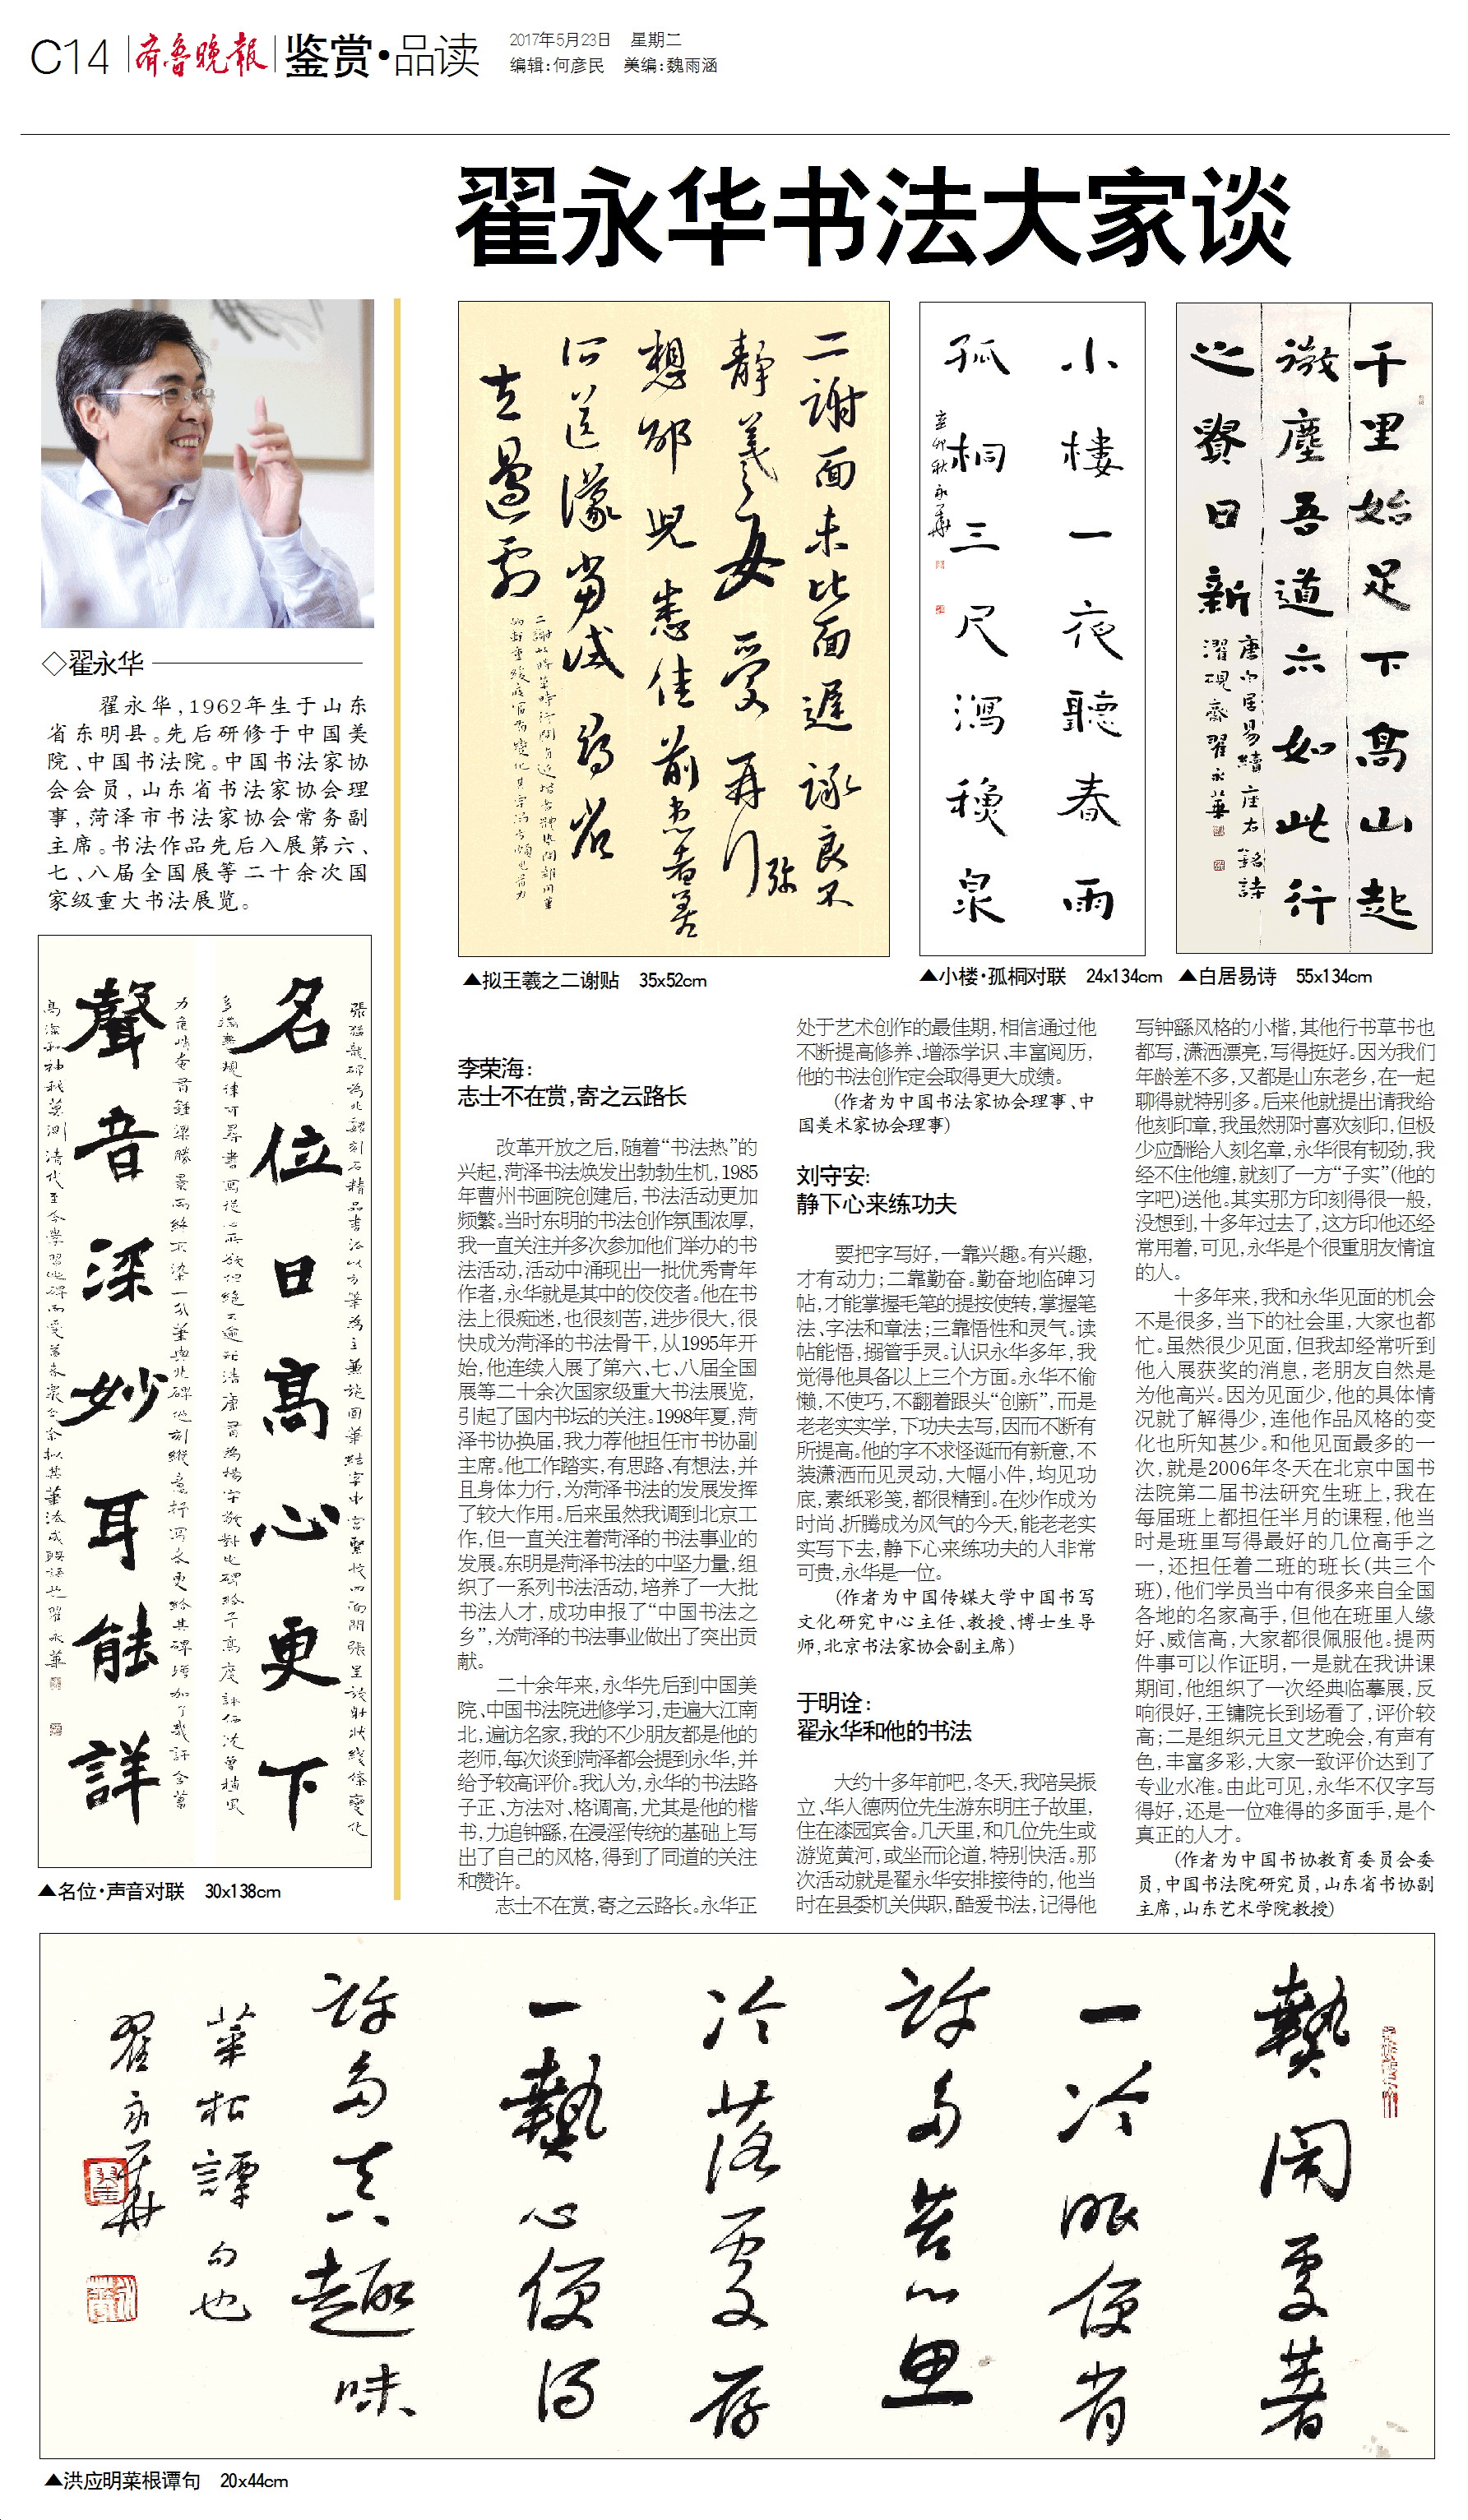 C14
齐鲁晚报
鉴赏·品读
2017年5月23日 星期二
编辑:何彦民 美编:魏雨涵
翟永华书法大家谈
◇翟永华
翟永华,1962年生于山东
省东明县。先后研修于中国美
院、中国书法院。中国书法家协
会会员,山东省书法家协会理
事,菏泽市书法家协会常务副
主席。书法作品先后入展第六、
七、八届全国展等二十余次国
家级重大书法展览。
名位日高心更下
聲音深妙耳能詳
▲名位·声音对联 30x138cm
二謝面未比面遲詠良不
靜羲之女愛再行
想邰兒悉佳前患者善
所送議當試尋省
左邊劇
▲拟王羲之二谢贴 35x52cm
小樓一夜聽春雨
孤桐三尺瀉穐泉
辛卯秋永華
▲小楼·孤桐对联 24x134cm
千里始足下高山起
微塵吾道亦如此行
之貴日新
唐白居易續座右銘詩
濯硯齋翟永華
▲白居易诗 55x134cm
李荣海:
志士不在赏,寄之云路长
改革开放之后,随着“书法热”的
兴起,菏泽书法焕发出勃勃生机,1985
年曹州书画院创建后,书法活动更加
频繁。当时东明的书法创作氛围浓厚,
我一直关注并多次参加他们举办的书
法活动,活动中涌现出一批优秀青年
作者,永华就是其中的佼佼者。他在书
法上很痴迷,也很刻苦,进步很大,很
快成为菏泽的书法骨干,从1995年开
始,他连续入展了第六、七、八届全国
展等二十余次国家级重大书法展览,
引起了国内书坛的关注。1998年夏,菏
泽书协换届,我力荐他担任市书协副
主席。他工作踏实,有思路、有想法,并
且身体力行,为菏泽书法的发展发挥
了较大作用。后来虽然我调到北京工
作,但一直关注着菏泽的书法事业的
发展。东明是菏泽书法的中坚力量,组
织了一系列书法活动,培养了一大批
书法人才,成功申报了“中国书法之
乡”,为菏泽的书法事业做出了突出贡
献。
二十余年来,永华先后到中国美
院、中国书法院进修学习,走遍大江南
北,遍访名家,我的不少朋友都是他的
老师,每次谈到菏泽都会提到永华,并
给予较高评价。我认为,永华的书法路
子正、方法对、格调高,尤其是他的楷
书,力追钟繇,在浸淫传统的基础上写
出了自己的风格,得到了同道的关注
和赞许。
志士不在赏,寄之云路长。永华正
处于艺术创作的最佳期,相信通过他
不断提高修养、增添学识、丰富阅历,
他的书法创作定会取得更大成绩。
(作者为中国书法家协会理事、中
国美术家协会理事)
刘守安:
静下心来练功夫
要把字写好,一靠兴趣。有兴趣,
才有动力;二靠勤奋。勤奋地临碑习
帖,才能掌握毛笔的提按使转,掌握笔
法、字法和章法;三靠悟性和灵气。读
帖能悟,搦管手灵。认识永华多年,我
觉得他具备以上三个方面。永华不偷
懒,不使巧,不翻着跟头“创新”,而是
老老实实学,下功夫去写,因而不断有
所提高。他的字不求怪诞而有新意,不
装潇洒而见灵动,大幅小件,均见功
底,素纸彩笺,都很精到。在炒作成为
时尚、折腾成为风气的今天,能老老实
实写下去,静下心来练功夫的人非常
可贵,永华是一位。
(作者为中国传媒大学中国书写
文化研究中心主任、教授、博士生导
师,北京书法家协会副主席)
于明诠:
翟永华和他的书法
大约十多年前吧,冬天,我陪吴振
立、华人德两位先生游东明庄子故里,
住在漆园宾舍。几天里,和几位先生或
游览黄河,或坐而论道,特别快活。那
次活动就是翟永华安排接待的,他当
时在县委机关供职,酷爱书法,记得他
写钟繇风格的小楷,其他行书草书也
都写,潇洒漂亮,写得挺好。因为我们
年龄差不多,又都是山东老乡,在一起
聊得就特别多。后来他就提出请我给
他刻印章,我虽然那时喜欢刻印,但极
少应酬给人刻名章,永华很有韧劲,我
经不住他缠,就刻了一方“子实”(他的
字吧)送他。其实那方印刻得很一般,
没想到,十多年过去了,这方印他还经
常用着,可见,永华是个很重朋友情谊
的人。
十多年来,我和永华见面的机会
不是很多,当下的社会里,大家也都
忙。虽然很少见面,但我却经常听到
他入展获奖的消息,老朋友自然是
为他高兴。因为见面少,他的具体情
况就了解得少,连他作品风格的变
化也所知甚少。和他见面最多的一
次,就是2006年冬天在北京中国书
法院第二届书法研究生班上,我在
每届班上都担任半月的课程,他当
时是班里写得最好的几位高手之
一,还担任着二班的班长(共三个
班),他们学员当中有很多来自全国
各地的名家高手,但他在班里人缘
好、威信高,大家都很佩服他。提两
件事可以作证明,一是就在我讲课
期间,他组织了一次经典临摹展,反
响很好,王镛院长到场看了,评价较
高;二是组织元旦文艺晚会,有声有
色,丰富多彩,大家一致评价达到了
专业水准。由此可见,永华不仅字写
得好,还是一位难得的多面手,是个
真正的人才。
(作者为中国书协教育委员会委
员,中国书法院研究员,山东省书协副
主席,山东艺术学院教授)
熱闹處著
一冷眼便省
許多苦心思
冷落處存
一熱心便得
許多真趣味
菜根譚句也
翟永華
▲洪应明菜根谭句 20x44cm